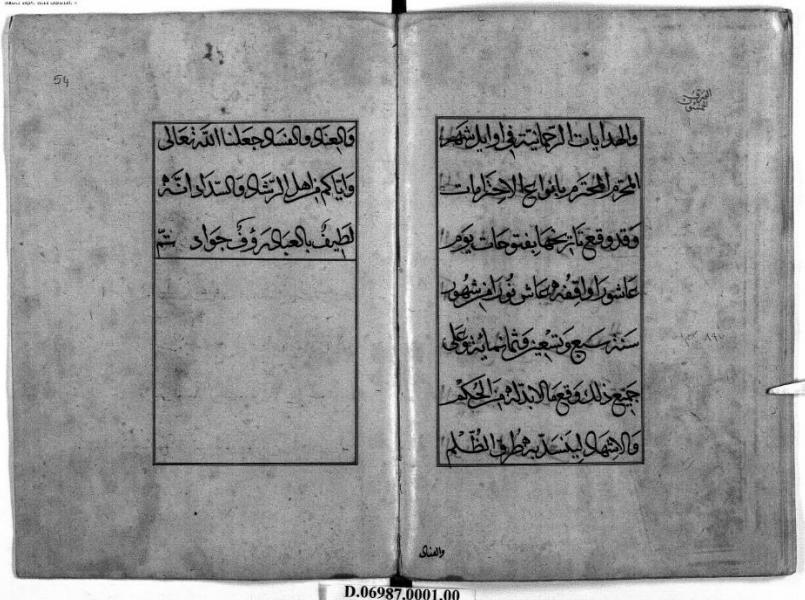 والهدايات الرحمانية في اوايل شهر
المحرم المحترم بانواع الاحترامات
وقد وقع تاريخها بفتوحات يوم
عاشورا واقفه عاش نورا في شهور
سنة سبع وتسعين وثمانمائة وعلى
جميع ذلك وقع مالابد له من الحكم
والاشهاد لينسد به طرق الظلم
والعناد
54
والعناد والفساد جعلنا الله تعالى
واياكم من اهل الرشاد والسداد انه
لطيف بالعباد رؤف جواد تم
D.06987.0001.00